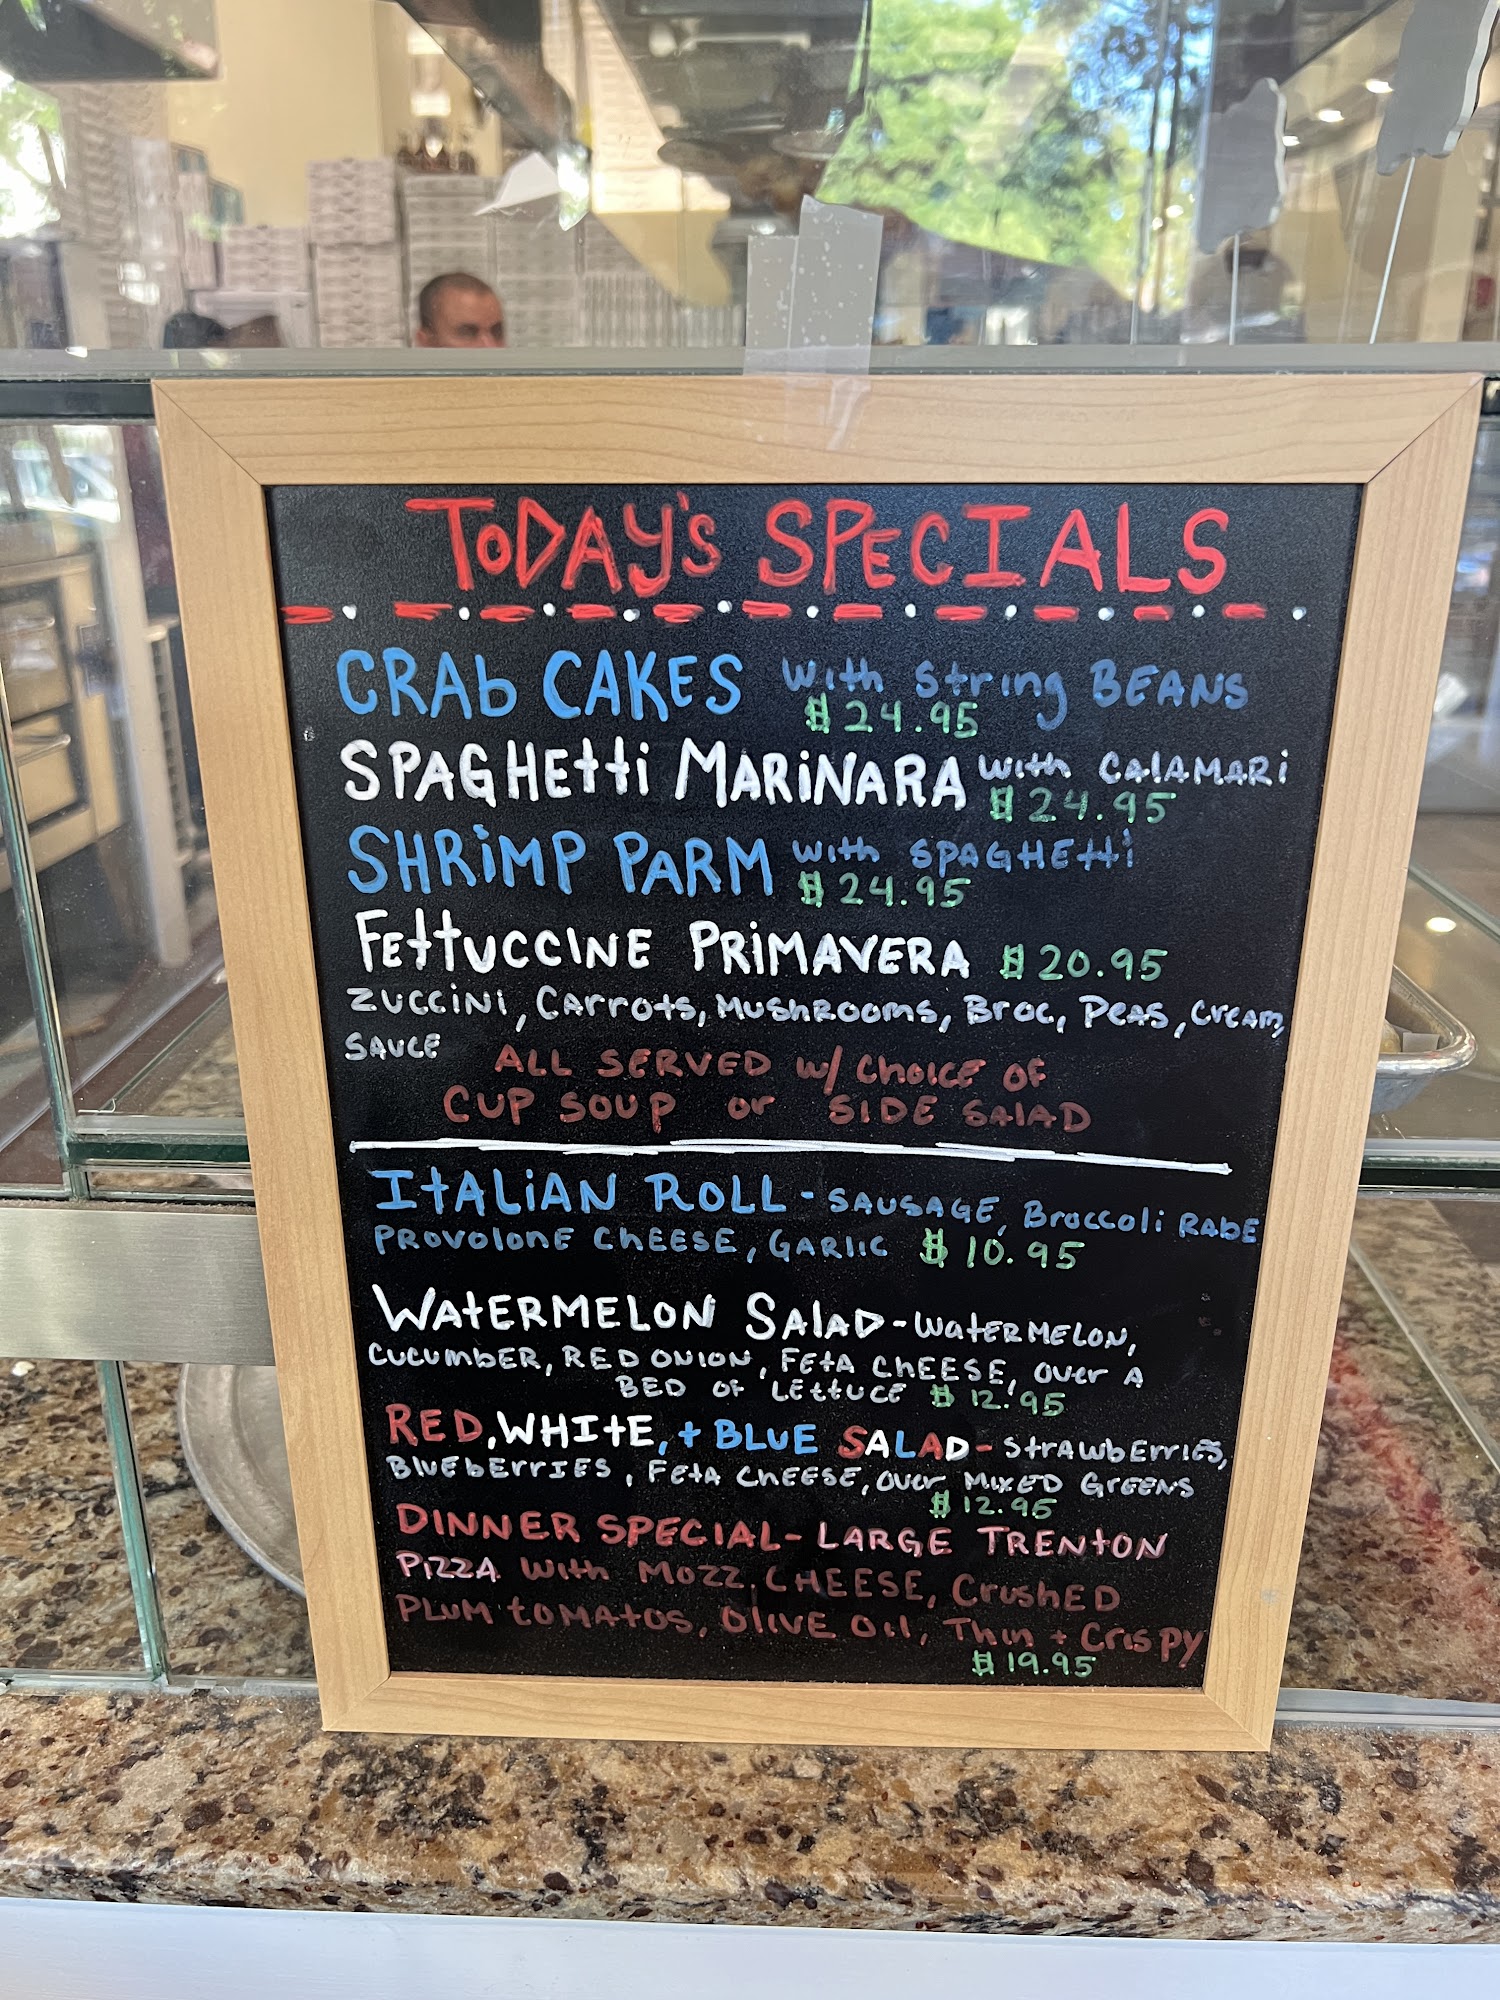 TODAY'S SPECIALS
CRAb CAKES with string BEANS
$24.95
SPAGHEtti MARiNARA with CAlAMARi
$24.95
SHRiMP PARM with SPAGHEtti
$24.95
FEttUCCINE PRiMAVERA $20.95
ZUCCiNi, CArrots, MUSHROOMS, BroC, PEAS, CrEAM,
SAUCE
ALL SERVED w/ CHOICE OF
CUP SOUP or SIDE SALAD
ItALiAN ROLL - SAUSAGE, Broccoli RABE
PROVOlONE CHEESE, GARlIC $10.95
WAtERMELON SALAD - WAtERMELON,
CUCUMbER, RED ONION, FEtA CHEESE, OVEr A
BED OF LEttUCE $12.95
RED, WHItE, + BLUE SALAD - StrAWbErriES,
BlUEbErriES, FEtA CHEESE, OVEr MIXED GREENS
$12.95
DINNER SPECIAL - LARGE TRENtON
PiZZA With MOZZ. CHEESE, CrUSHED
PLUM tOMAtOS, OliVE Oil, Thin + CriSPy
$19.95